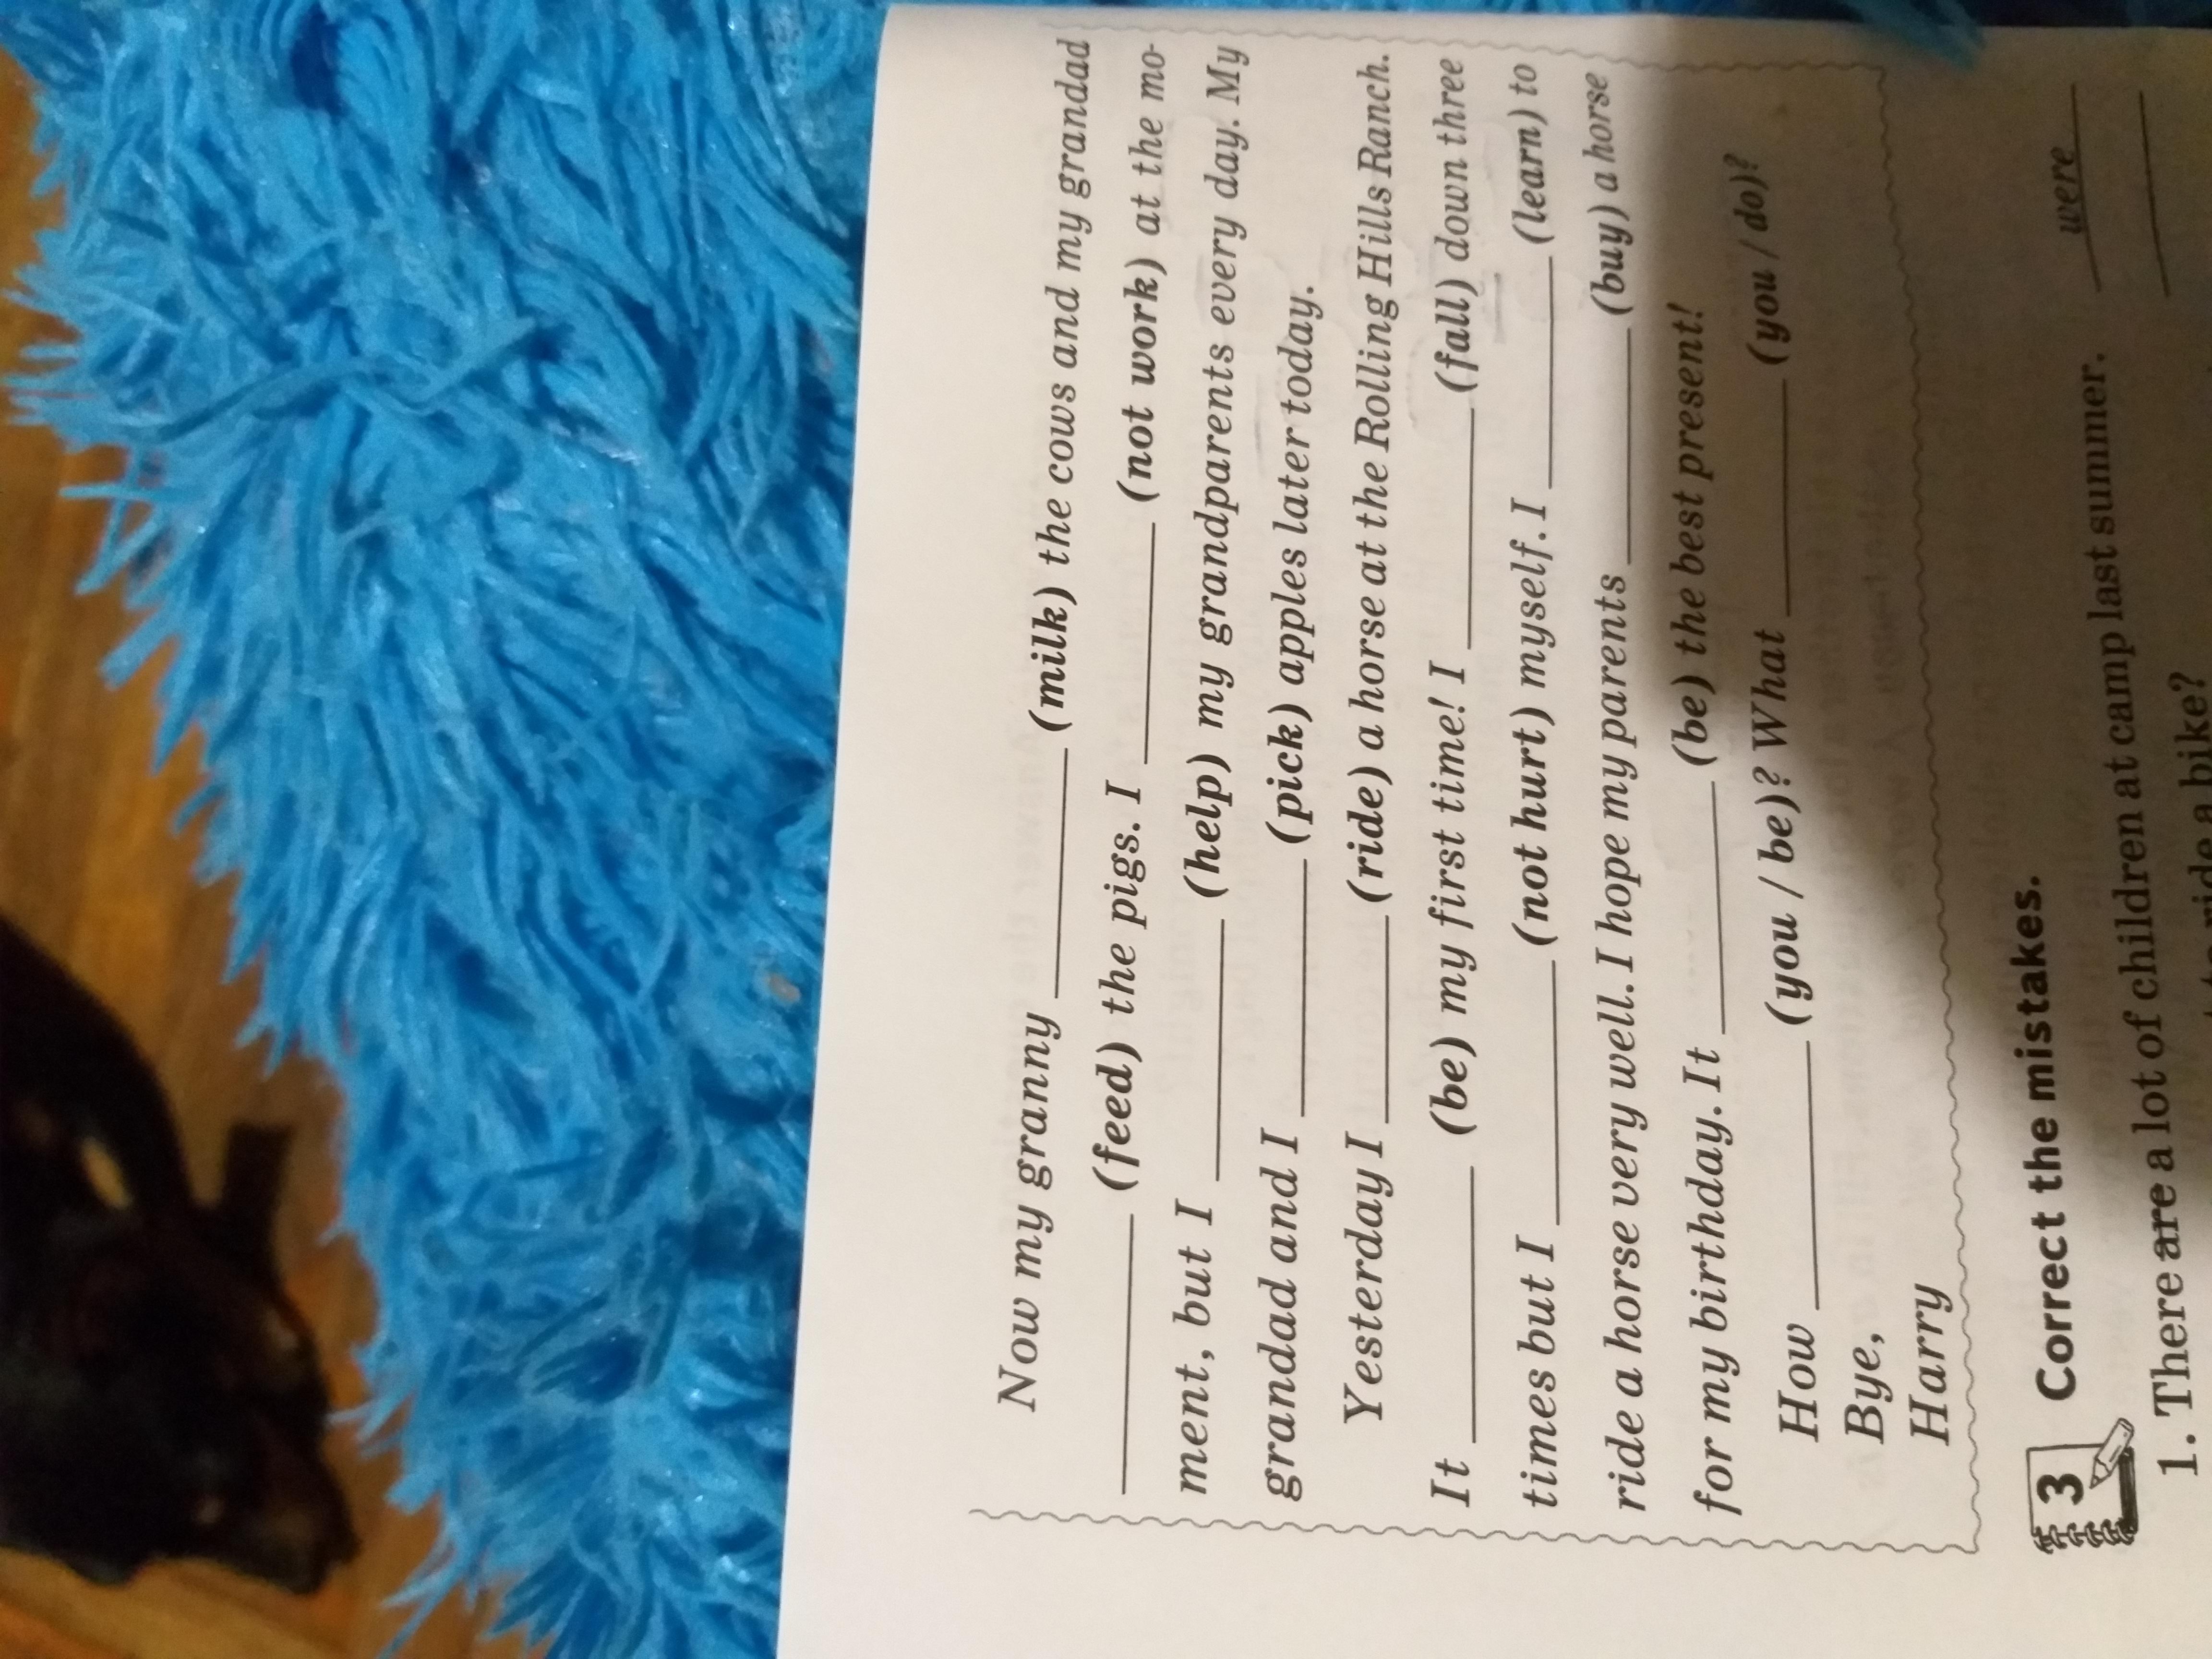 Now my granny ________ (milk) the cows and my grandad
________ (feed) the pigs. I ________ (not work) at the mo-
ment, but I ________ (help) my grandparents every day. My
grandad and I ________ (pick) apples later today.
Yesterday I ________ (ride) a horse at the Rolling Hills Ranch.
It ________ (be) my first time! I ________ (fall) down three
times but I ________ (not hurt) myself. I ________ (learn) to
ride a horse very well. I hope my parents ________ (buy) a horse
for my birthday. It ________ (be) the best present!
How ________ (you / be)? What ________ (you / do)?
Bye,
Harry
3 Correct the mistakes.
1. There are a lot of children at camp last summer. were
ride a bike?